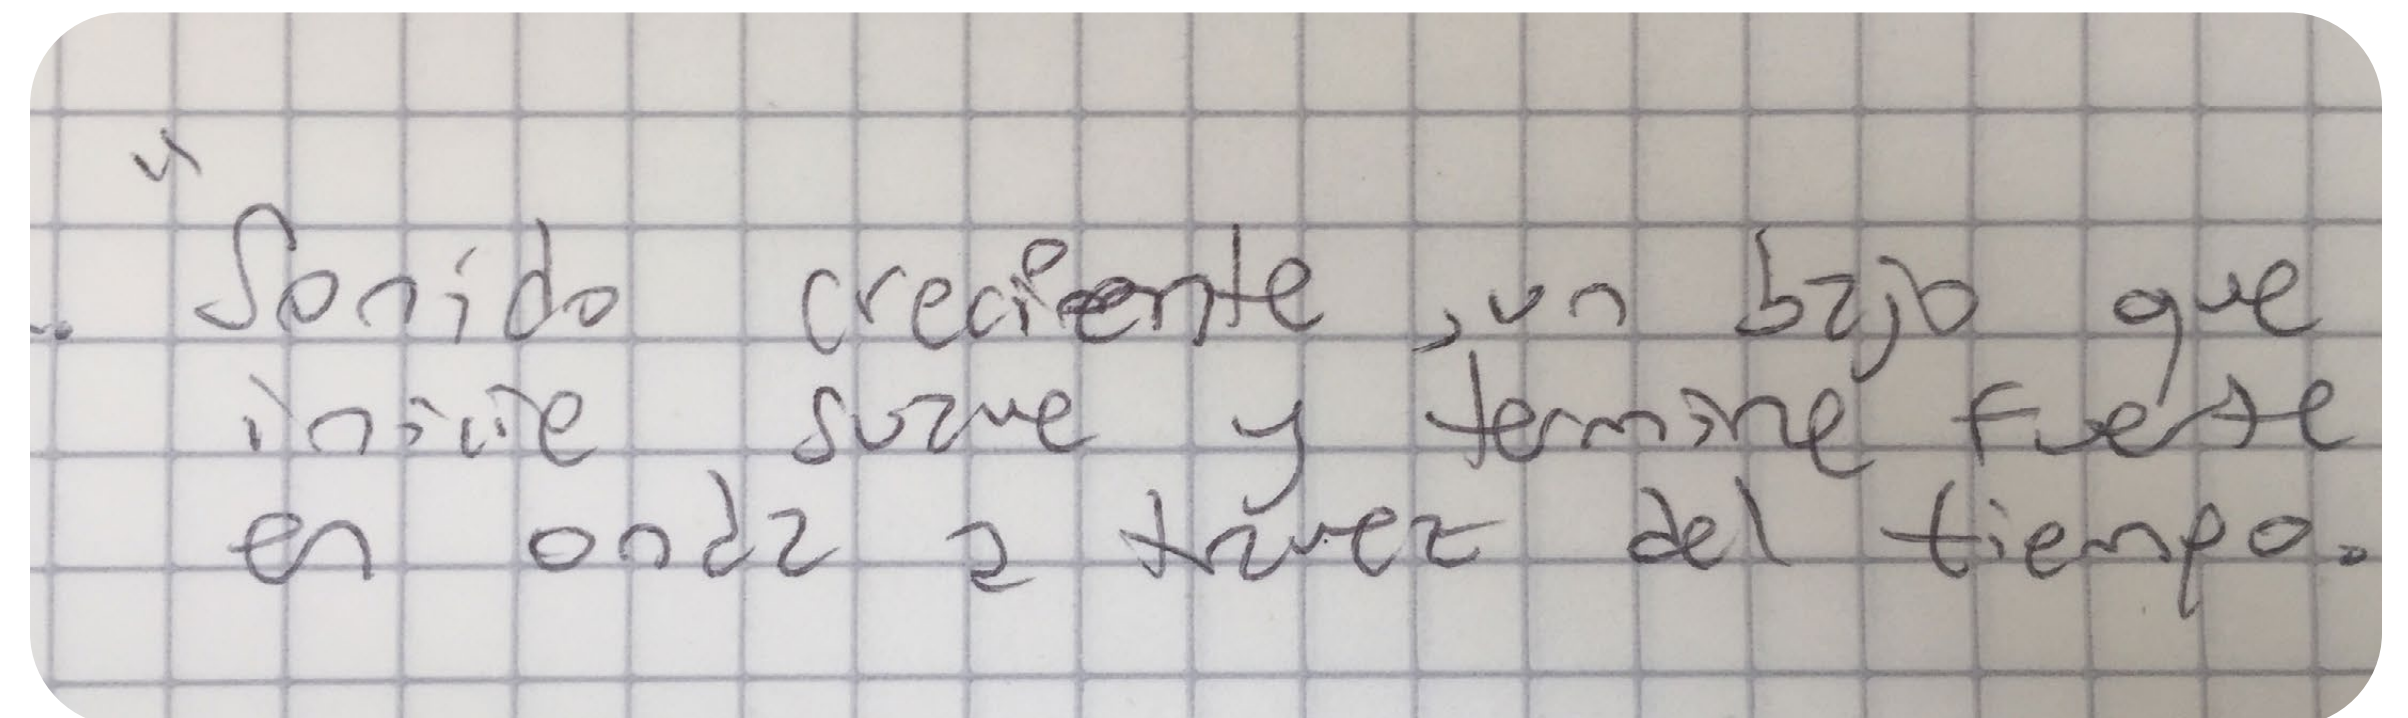 "Sonido creciente, un bajo que
inicie suave y termine fuerte
en onda a travez del tiempo.